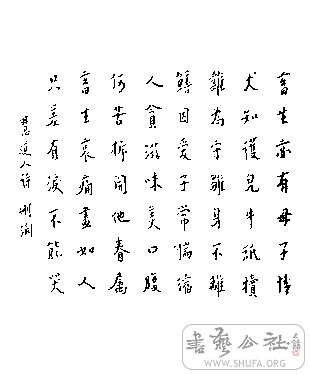 畜生亦有母子情
犬知護兒牛舐犢
雞為守雛身不離
鱔因愛子常惴縮
人貪滋味美口腹
何苦拆開他眷屬
畜生哀痛盡如人
只差有淚不能哭
道人詩 刪潤
書藝公社
WWW.SHUFA.ORG